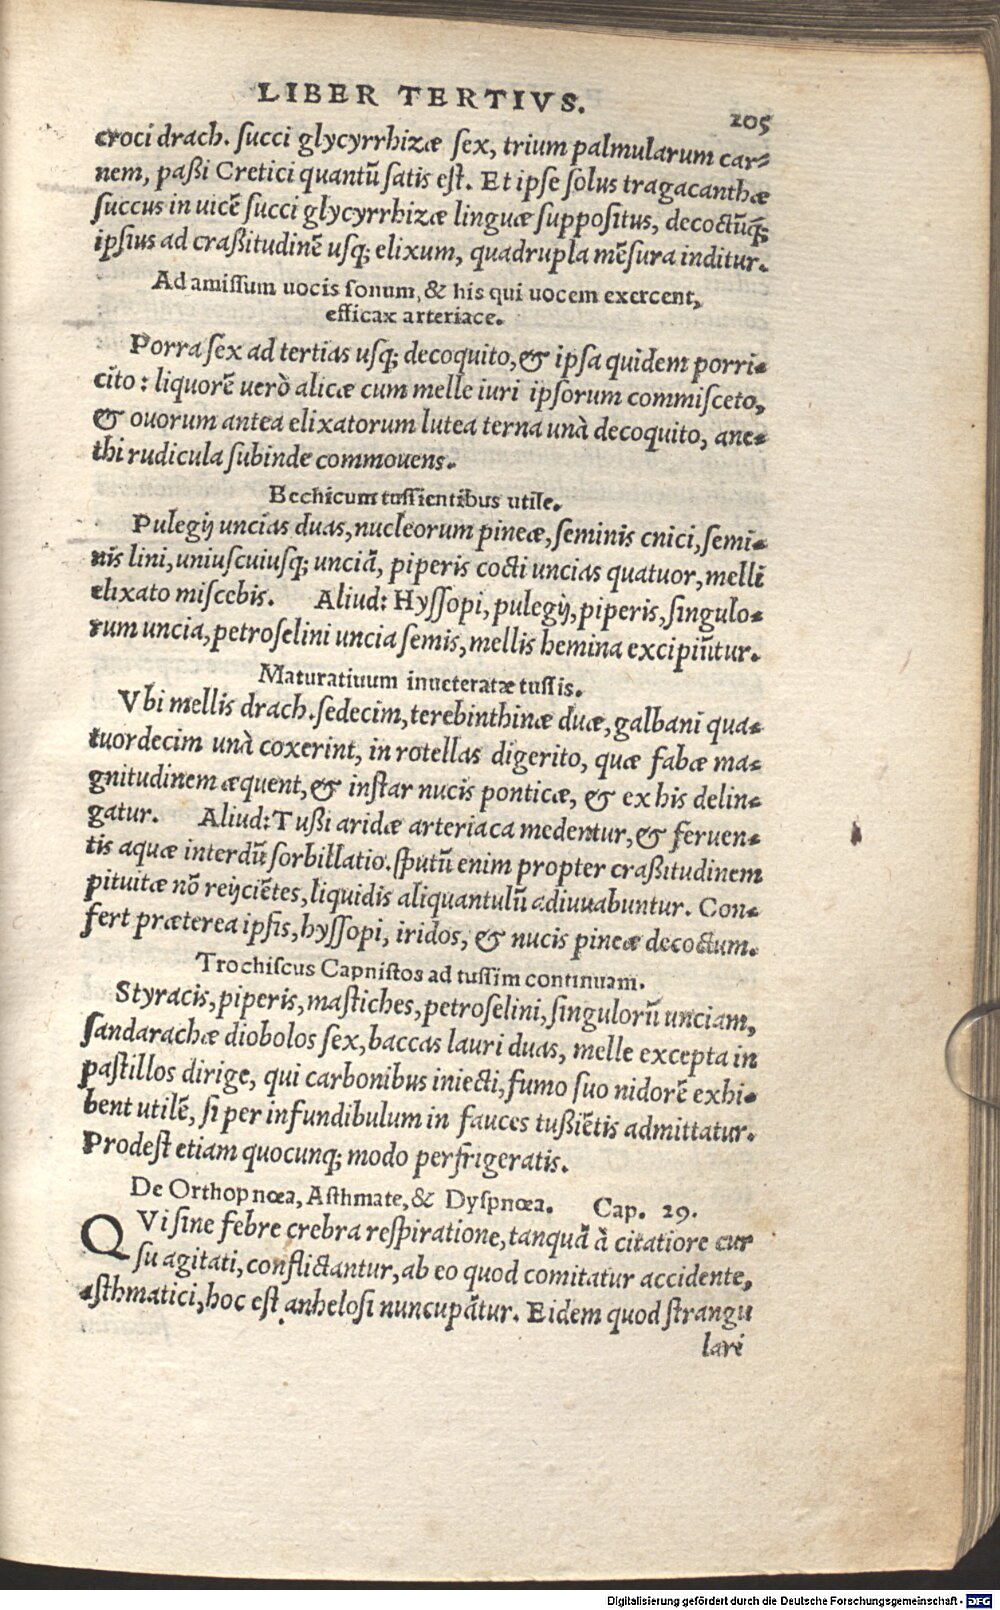 LIBER TERTIVS.
205
croci drach. ſucci glycyrrhizæ ſex, trium palmularum car-
nem, paßi Cretici quantũ ſatis eſt. Et ipſe ſolus tragacanthæ
ſuccus in uicẽ ſucci glycyrrhizæ linguæ ſuppoſitus, decoctũq́;
ipſius ad craßitudinẽ uſq; elixum, quadrupla mẽſura inditur.
Ad amiſſum uocis ſonum, & his qui uocem exercent,
efficax arteriace.
Porra ſex ad tertias uſq; decoquito, & ipſa quidem porri-
cito: liquorẽ uerò alicæ cum melle iuri ipſorum commiſceto,
& ouorum antea elixatorum lutea terna unà decoquito, ane-
thi rudicula ſubinde commouens.
Bechicum tuſſientibus utile.
Pulegij uncias duas, nucleorum pineæ, ſeminis cnici, ſemi-
nis lini, uniuſcuiuſq; unciã, piperis cocti uncias quatuor, melli
elixato miſcebis. Aliud: Hyſſopi, pulegij, piperis, ſingulo-
rum uncia, petroſelini uncia ſemis, mellis hemina excipiũtur.
Maturatiuum inueteratæ tuſſis.
Vbi mellis drach. ſedecim, terebinthinæ duæ, galbani qua-
tuordecim unà coxerint, in rotellas digerito, quæ fabæ ma-
gnitudinem æquent, & inſtar nucis ponticæ, & ex his delin-
gatur. Aliud: Tußi aridæ arteriaca medentur, & feruen-
tis aquæ interdũ ſorbillatio. ſputũ enim propter craßitudinem
pituitæ nõ reijciẽtes, liquidis aliquantulũ adiuuabuntur. Con-
fert præterea ipſis, hyſſopi, iridos, & nucis pineæ decoctum.
Trochiſcus Capniſtos ad tuſſim continuam.
Styracis, piperis, maſtiches, petroſelini, ſingulorũ unciam,
ſandarachæ diobolos ſex, baccas lauri duas, melle excepta in
paſtillos dirige, qui carbonibus iniecti, fumo ſuo nidorẽ exhi-
bent utilẽ, ſi per infundibulum in fauces tußiẽtis admittatur.
Prodeſt etiam quocunq; modo perfrigeratis.
De Orthopnœa, Aſthmate, & Dyſpnœa. Cap. 29.
QVi ſine febre crebra reſpiratione, tanquã à citatiore cur
ſu agitati, conflictantur, ab eo quod comitatur accidente,
aſthmatici, hoc eſt anheloſi nuncupãtur. Eidem quod ſtrangu
lari
Digitalisierung gefördert durch die Deutsche Forschungsgemeinschaft - DFG